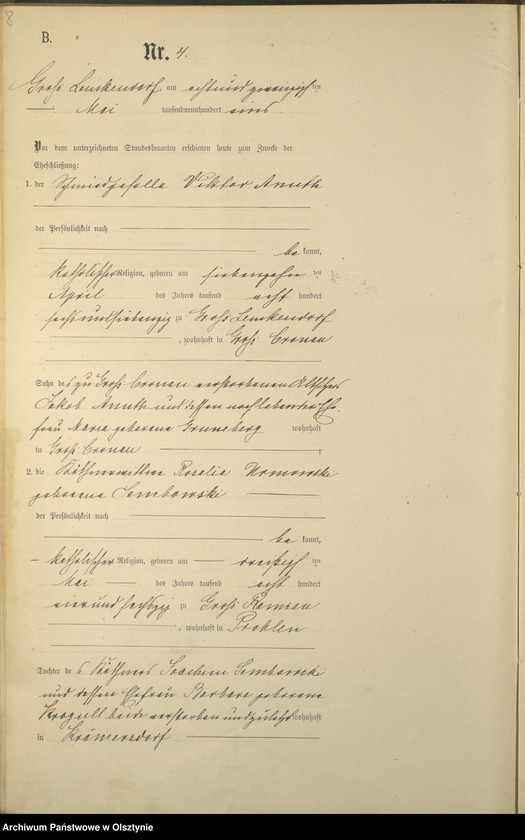 8
B.
Nr. 4.
Groß Lemkendorf am achtundzwanzigsten
Mai tausendneunhundert eins.
Vor dem unterzeichneten Standesbeamten erschienen heute zum Zwecke der
Eheschließung:
1. der Schmiedgeselle Viktor Anuth
der Persönlichkeit nach
be kannt,
katholischer Religion, geboren am siebenzehn ten
April des Jahres tausend acht hundert
sechsundsiebenzig zu Groß Lemkendorf
, wohnhaft in Groß Cronau
Sohn des zu Groß Cronau verstorbenen Altsitzers
Jakob Anuth und dessen nachlebender Ehe-
frau Maria geborene Gruneberg wohnhaft
in Groß Cronau
2. die Käthnerwittwe Rosalia
geborene Sombowski
der Persönlichkeit nach
be kannt,
katholischer Religion, geboren am dreißigsten
Mai des Jahres tausend acht hundert
vierundsechszig zu Groß Ramsau
, wohnhaft in Prohlen
Tochter des Käthners Joachim
und dessen Ehefrau Barbara geborene
beide verstorben und zuletzt wohnhaft
in Krämersdorf
Archiwum Państwowe w Olsztynie